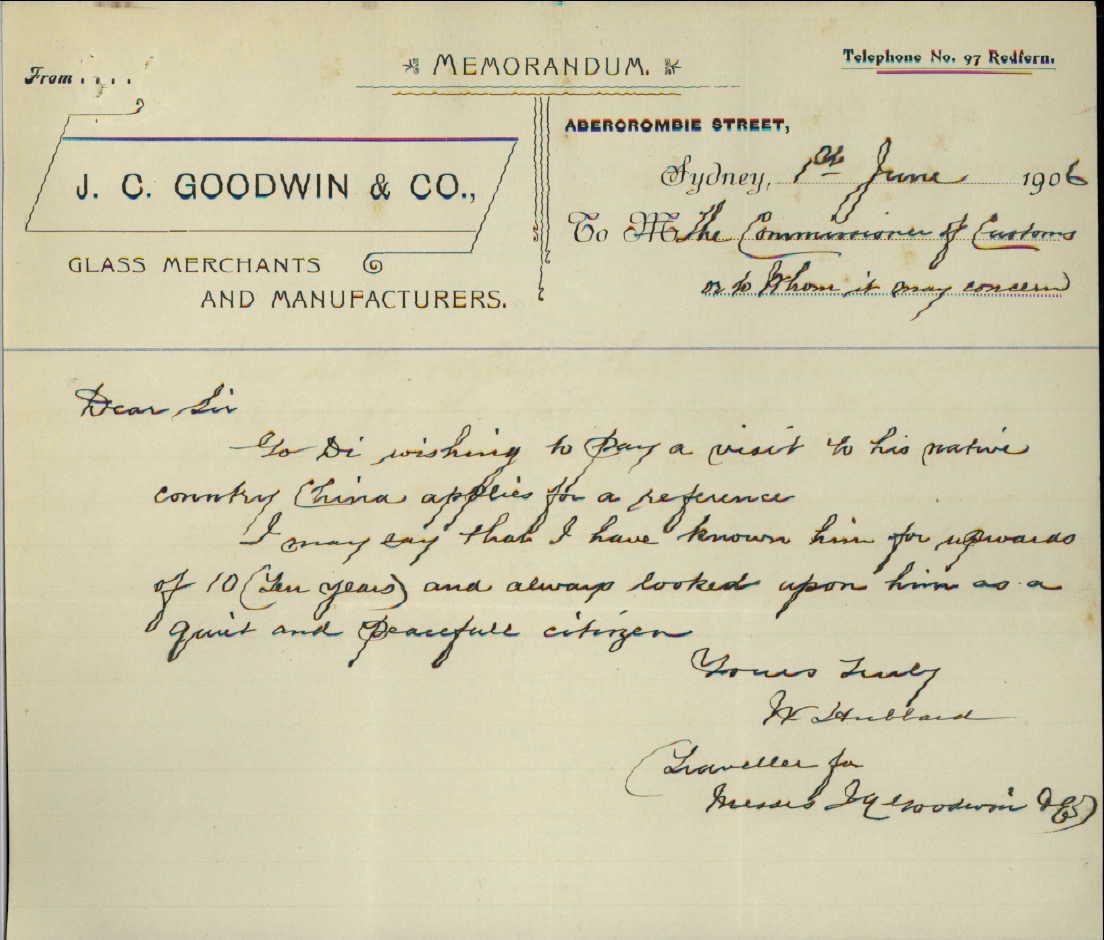 From . . . .
MEMORANDUM.
Telephone No. 97 Redfern.
J. C. GOODWIN & CO.,
GLASS MERCHANTS
AND MANUFACTURERS.
ABERCROMBIE STREET,
Sydney, 1st June 1906
To M The Commissioner of Customs
or to Whom it may concern
Dear Sir
Go Di wishing to pay a visit to his native
country China applies for a reference
I may say that I have known him for upwards
of 10 (Ten years) and always looked upon him as a
quiet and peacefull citizen
Yours Truly
Hubbard
(Traveller for
Messrs J C Goodwin & Co)